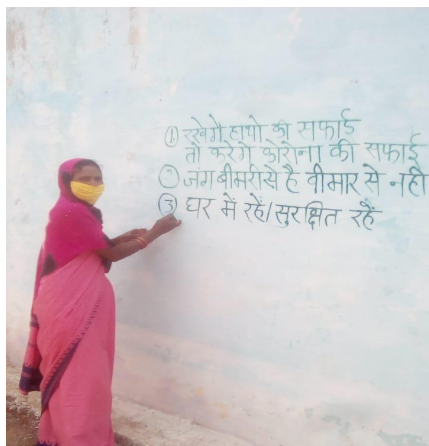 ① रखेगें हाथो की सफाई
तो करेगे कोरोना की सफाई
② जंग बीमरी से है बीमार से नही
③ घर में रहें/सुरक्षित रहैं